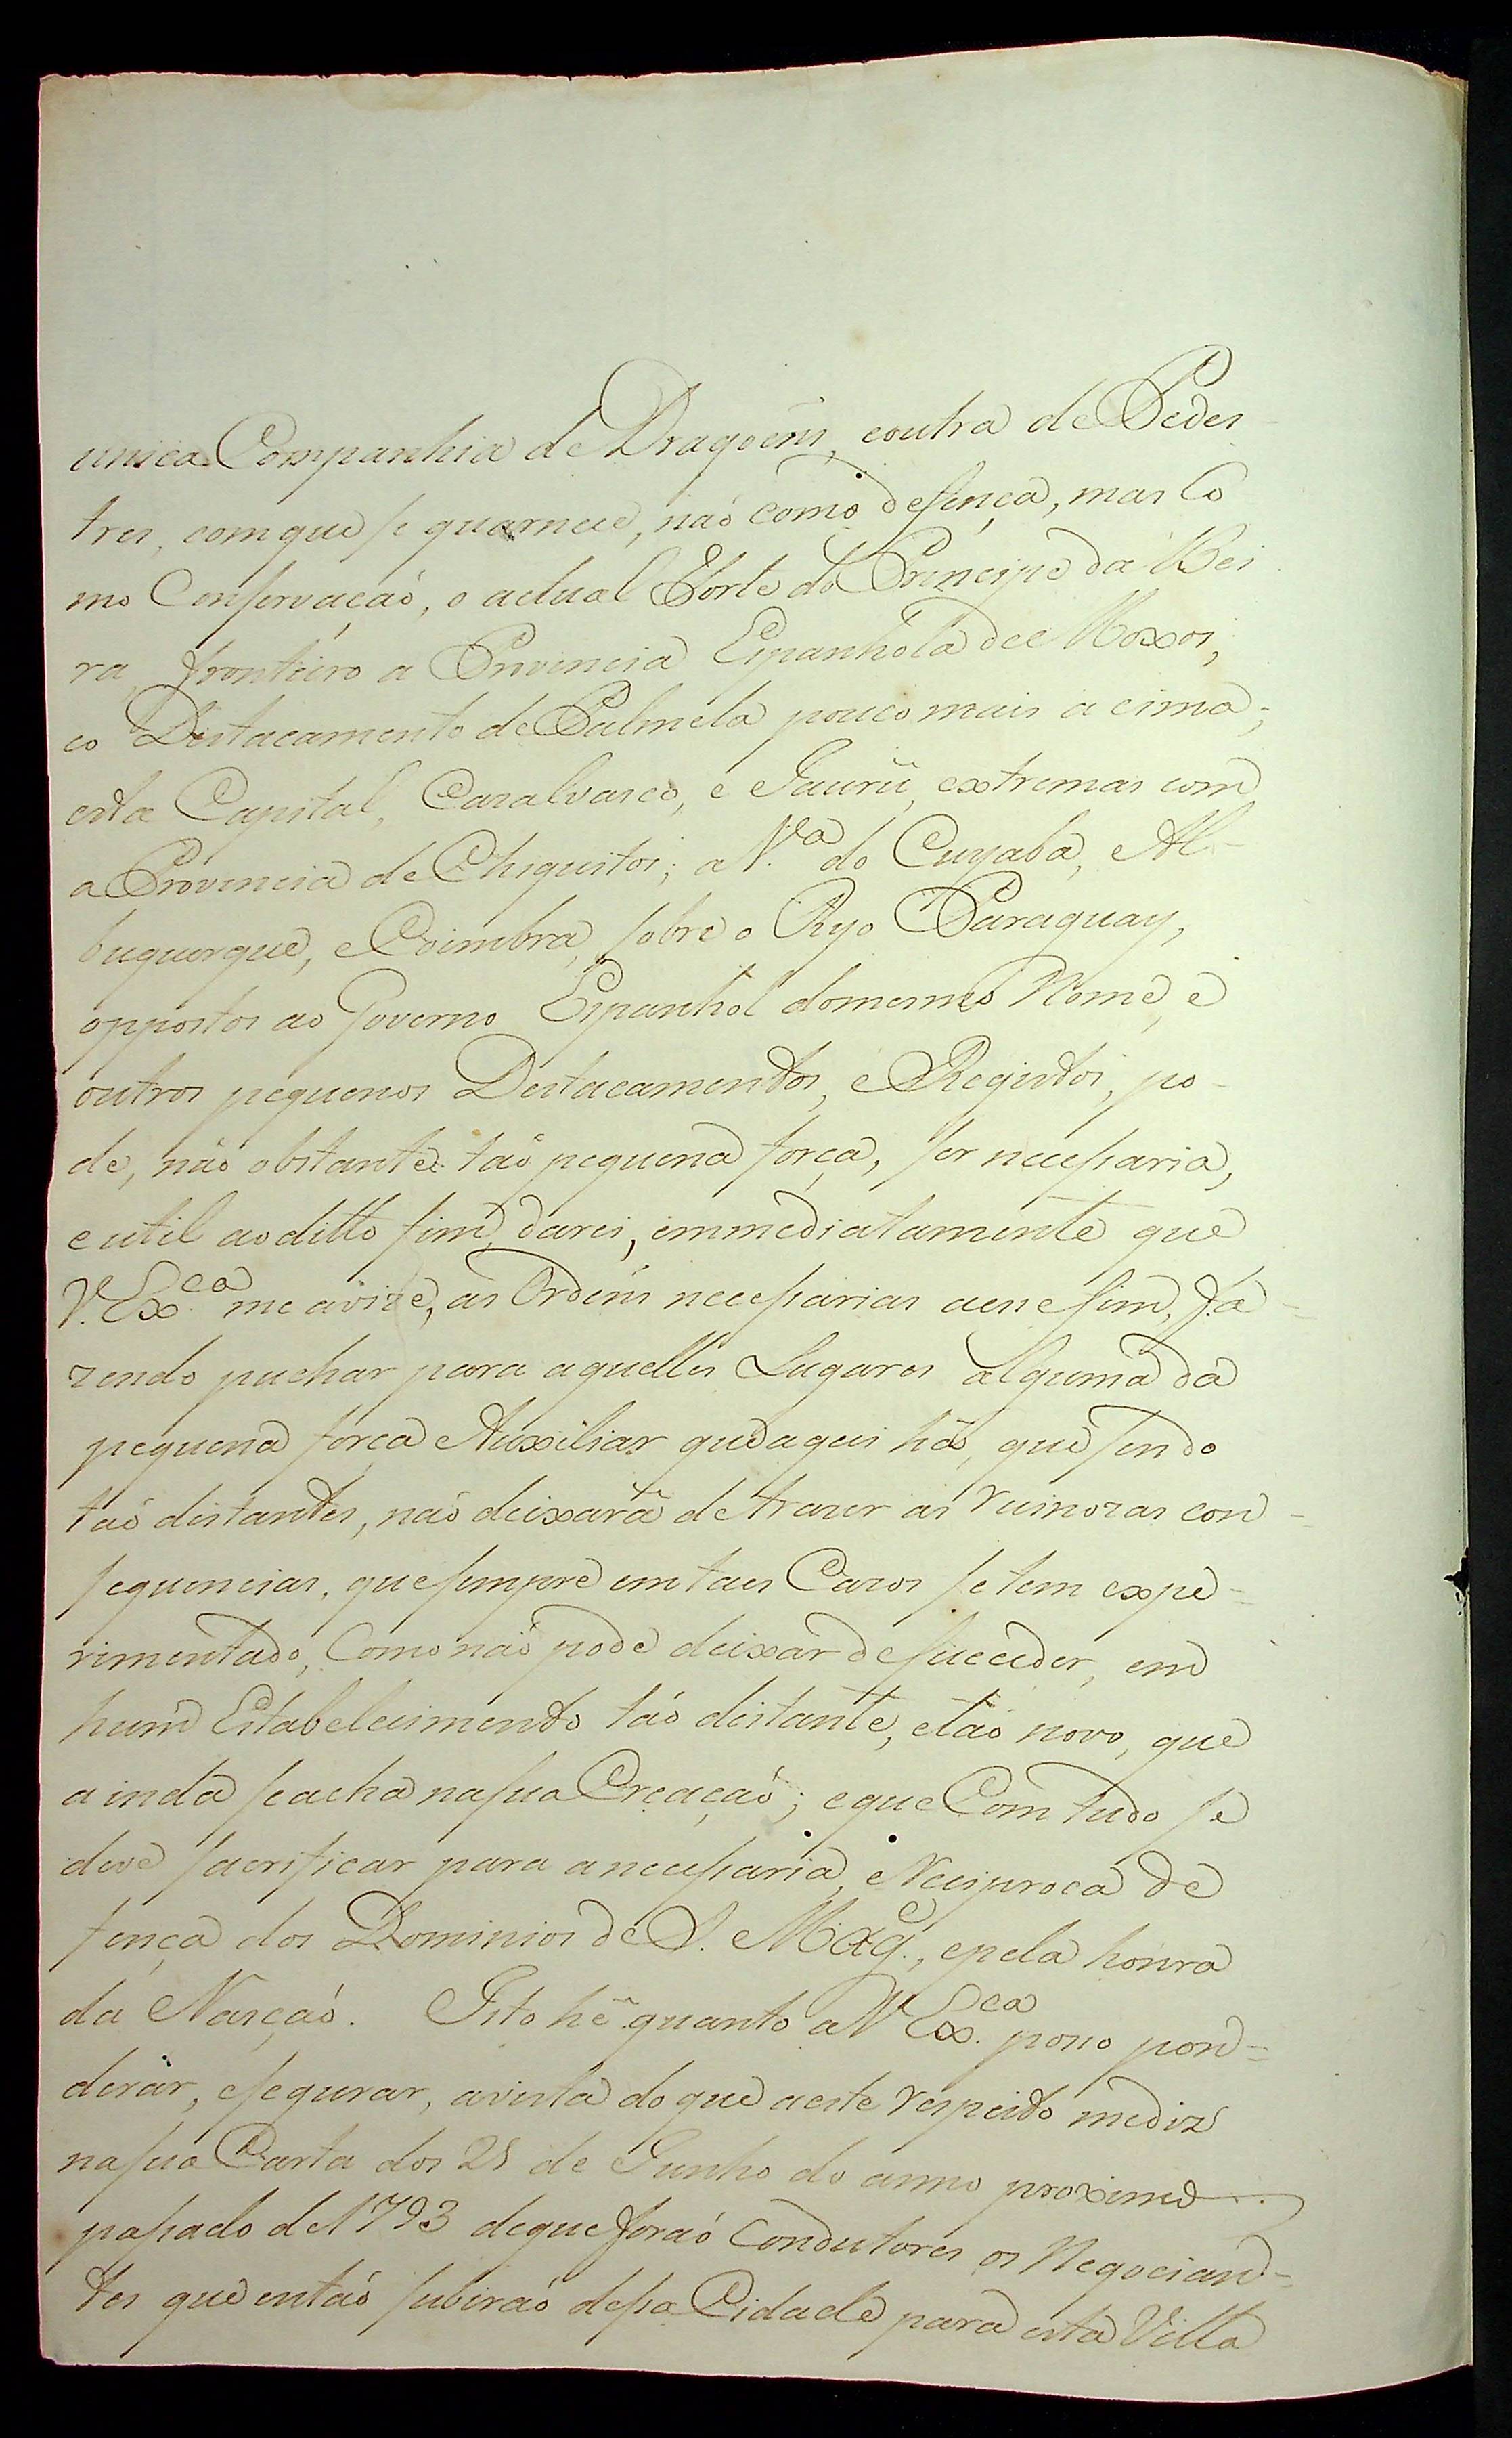 unica Companhia de Dragoens, eoutra de Pedes
tres, comque se guarnece, naõ como defença, mas Co
mo Conservaçaõ, o actual Forte do Principe da Bei
ra, fronteiro a Provincia Espanhola dee Moxos,
eo Destacamento de Palmela pouco mais a cima;
esta Capital, Cazalvasco, e Jaurú, extremas com
a Provincia de Chiquitos; a V.ª do Cuyaba, Al-
buquerque, e Coimbra, sobre o Ryo Paraguay,
oppostos ao Governo Espanhol domesmo Nome, e
outros pequenos Destacamentos, e Registos, po-
de, não obstante taõ pequena força, ser necessaria,
e util ao ditto fim, darei, immediatamente que
V. Ex.ca me avize, as Ordens necessarias aesse fim, fa=
zendo puchar para aquelles Lugares alguma da
pequena força Auxiliar quedaqui há, que sendo
taõ distantes, naõ deixará de trazer as ruinozas con=
sequencias, quesempre emtaes Cazos se tem expe=
rimentado, Comonaõ pode deixar desuceder, em
hum Estabelecimento taõ distante, etaõ novo, que
ainda seacha nasua Creaçaõ; eque Comtudo se
deve sacrificar para anecessaria, eReciproca de
fença dos Dominios de S. Mag.e, epela honra
da Nasçaõ. Isto hé quanto aV Ex.ca posso pon=
derar, esegurar, avista doque aeste respeito mediz
nasua Carta dos 25 de Junho do anno proximo
passado de1793 dequeforaõ Condutores os Negocian=
tes que entaõ subiraõ dessa Cidade para esta Villa